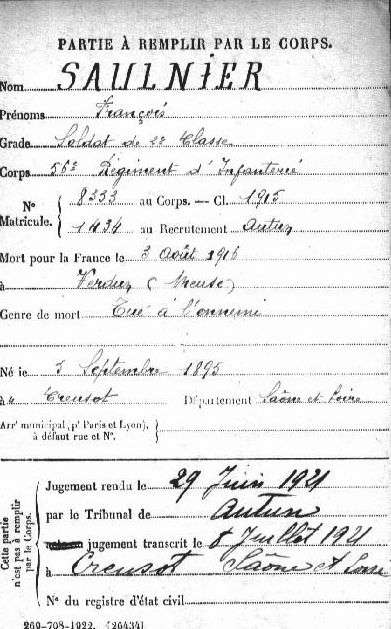 PARTIE À REMPLIR PAR LE CORPS.
Nom SAULNIER
Prénoms François
Grade Soldat de 2e Classe
Corps 56e Régiment d'Infanterie
No Matricule. 8333 au Corps. — Cl. 1915
1434 au Recrutement Autun
Mort pour la France le 3 Août 1916
à Verdun (Meuse)
Genre de mort Tué à l'ennemi
Né le 5 Septembre 1895
à Creusot Département Saône et Loire
Arrt municipal (pr Paris et Lyon),
à défaut rue et No.
Cette partie n'est pas à remplir par le Corps.
Jugement rendu le 29 Juin 1921
par le Tribunal de Autun
jugement transcrit le 8 Juillet 1921
à Creusot Saône et Loire
No du registre d'état civil
269-708-1922. [26434]